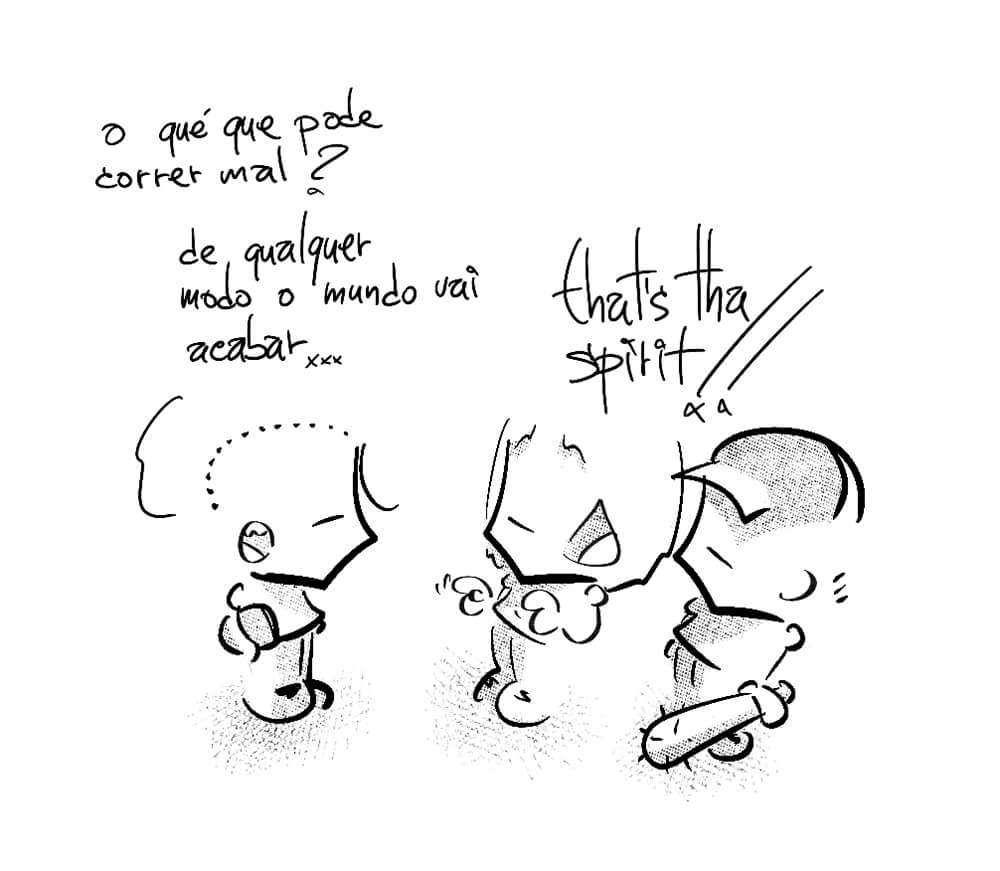 o qué que pode
correr mal?
de qualquer
modo o mundo vai
acabar...
that's tha
spirit!!